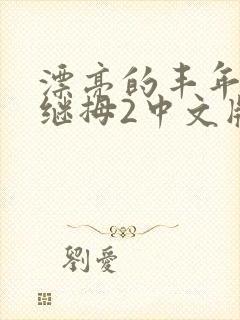 漂亮的丰年
继拇2中文版
劉愛